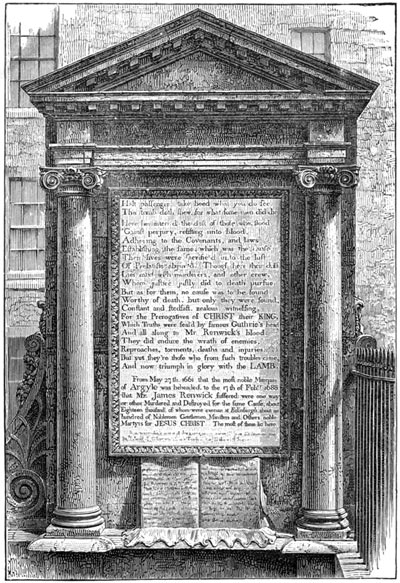 Halt passenger, take heed what you do see
This tomb doth shew, for what some men did die
Here lies interr'd the dust of those who stood
'Gainst perjury, resisting unto blood,
Adhering to the Covenants, and laws
Establishing the same; which was the cause
Their lives were sacrific'd unto the lust
Of Prelatists abjur'd. Though here their dust
Lies mixt with murderers, and other crew,
Whom justice justly did to death pursue
But as for them, no cause was to be found
Worthy of death, but only they were found,
Constant and stedfast, zealous witnessing,
For the Prerogatives of CHRIST their KING,
Which Truths were seal'd by famous Guthrie's head
And all along to Mr. Renwick's blood
They did endure the wrath of enemies
Reproaches, torments, deaths and injuries
But yet they're those who from such troubles came,
And now triumph in glory with the LAMB.
From May 27th 1661 that the most noble Marquis
of Argyle was beheaded, to the 17th of Feby 1688
that Mr. James Renwick suffered; were one way
or other Murdered and Destroyed for the same Cause, about
Eighteen thousand, of whom were execute at Edinburgh, about an
hundred of Noblemen Gentlemen, Ministers and Others noble
Martyrs for JESUS CHRIST. The most of them lie here